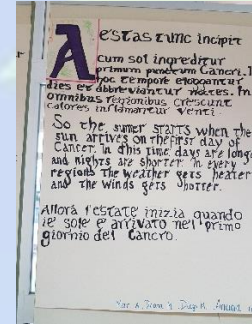 Aestas tunc incipit
cum sol ingreditur
primum punctum Cancri.
hoc tempore elongantur
dies et abbreviantur noctes. In
omnibus regionibus crescunt
calores inflamantur venti.
So the sumer starts when the
sun arrives on the first day of
Cancer. In this time days are longe
and nights are shorter in every
regions the weather gets heater
and the winds gets hotter.
Allora l'estate inizia quando
il sole e arrivato nel primo
giornio del Cancro.